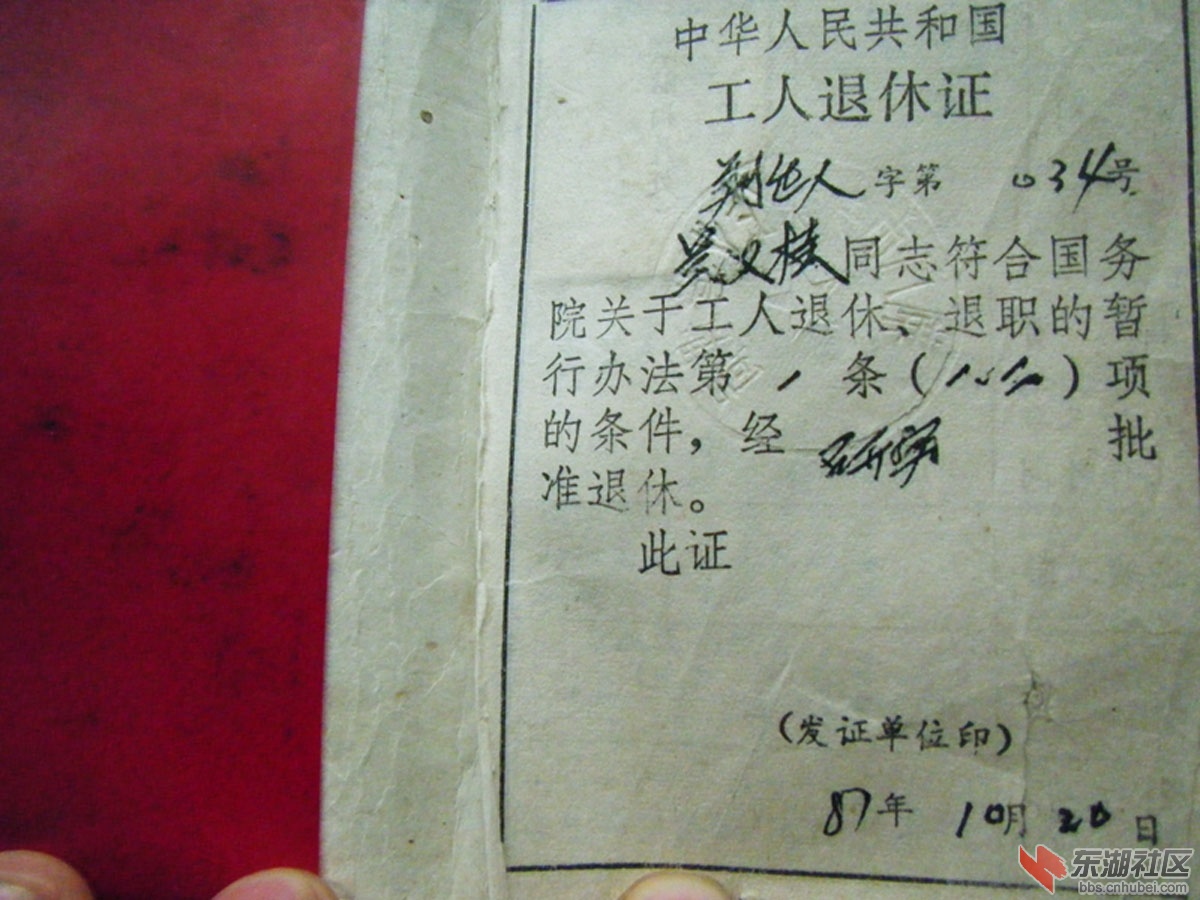 中华人民共和国
工人退休证
荆化人字第034号
吴义桂同志符合国务
院关于工人退休、退职的暂
行办法第1条()项
的条件，经 批
准退休。
此证
(发证单位印)
87年10月20日
东湖社区
bbs.cnhubei.com